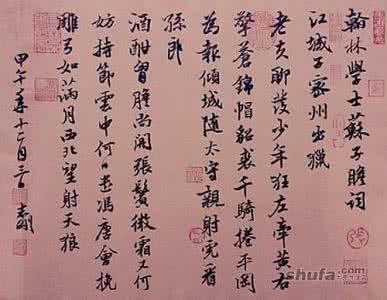 翰林學士蘇子瞻詞
江城子密州出獵
老夫聊發少年狂左牽黃右
擎蒼錦帽貂裘千騎捲平岡
為報傾城隨太守親射虎看
孫郎
酒酣胸膽尚開張鬢微霜又何
妨持節雲中何日遣馮唐會挽
雕弓如滿月西北望射天狼
甲午年十二月三日
shufa.com